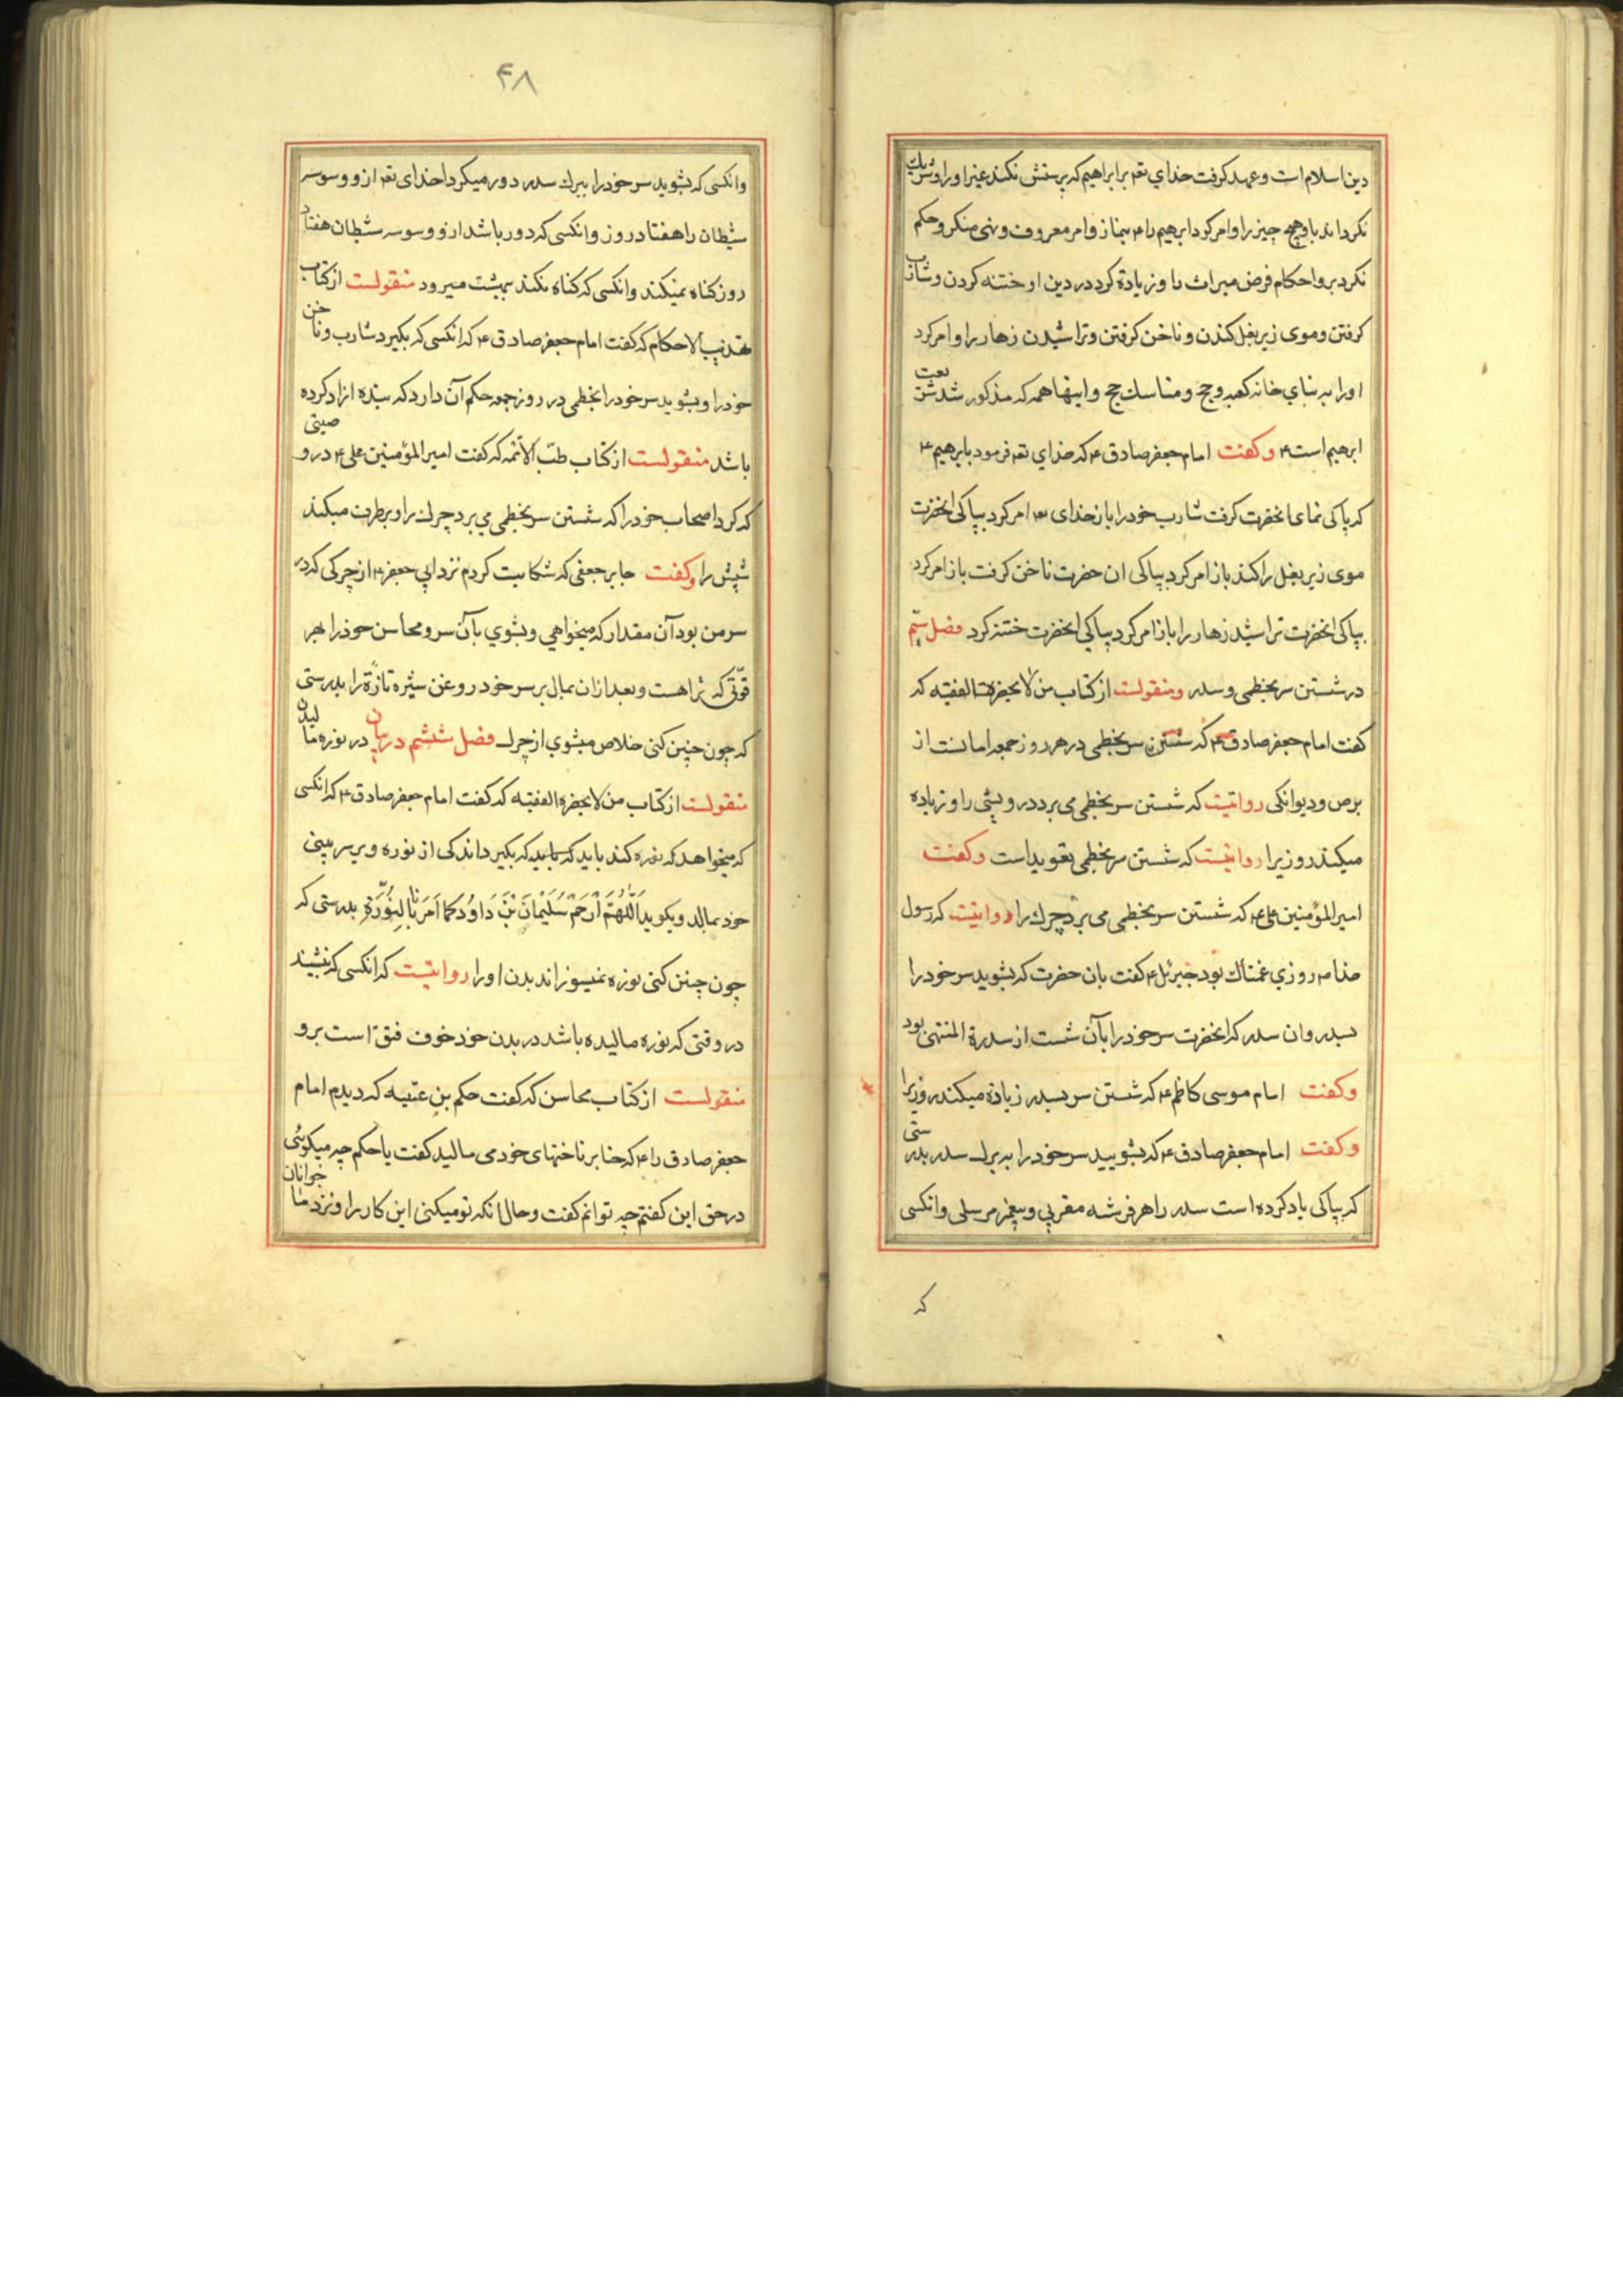 دین اسلام است و عهد کرفت خدای تعم برابراهیم که پرستش نکند غیر او را و شریک
نکرداند باو هیچ چیز را و امر کرد ابرهیم را ۴ بنماز و امر معروف و نهی منکر و حکم
نکرد برو احکام فرض میراث را و زیادة کرد در دین او ختنه کردن و شارب
کرفتن و موی زیر بغل کندن و ناخن کرفتن و تراشیدن زهار را و امر کرد
او را به بنای خانه کعبه و حج و مناسک حج و اینها همه که مذکور شد شریعت
ابرهیم است ۴ و کفت امام جعفر صادق ۴ که خدای تعم فرمود بابرهیم ۴
که پاکی نمای انحضرت کرفت شارب خود را باز خدای امر کرد بپاکی انحضرت
موی زیر بغل را کند باز امر کرد بپاکی ان حضرت ناخن کرفت باز امر کرد
بپاکی انحضرت تراشید زهار را باز امر کرد بپاکی انحضرت ختنه کرد فصل
در شستن سر بخطمی و سدر و منقولست از کتاب من لا یحضره الفقیه که
کفت امام جعفر صادق ۴ که شستن سر بخطمی در هر روز جمعه امانست از
برص و دیوانکی روایتست که شستن سر بخطمی می برد درویشی را و زیاده
میکند روزی را روایتست که شستن سر بخطمی تعویذ است و کفت
امیر المؤمنین علی ۴ که شستن سر بخطمی می برد چرک را روایتست که رسول
خدا روزی غمناک بود جبرئل ۴ کفت بان حضرت که بشوید سر خود را
بسدر و ان سدر که انحضرت سر خود را بآن شست از سدرة المنتهی بود
و کفت امام موسی کاظم ۴ که شستن سر بسدر زیادة میکند روزی را
و کفت امام جعفر صادق ۴ که بشویید سر خود را به برک سدر بدرستی
که بپاکی یاد کرده است سدر را هر فرشه مقربی و پیغمبر مرسلی و انکسی
که
۴۸
و انکسی که بشوید سر خود را ببرک سدر دور میکرداند خدای تعم ازو وسوسه
شیطان را هفتاد روز و انکسی که دور باشد ازو وسوسه شیطان هفتاد
روز کناه نمیکند و انکسی که کناه نکند ببهشت میرود منقولست از کتاب
تهذیب الاحکام که کفت امام جعفر صادق ۴ که انکسی که بکیرد شارب و ناخن
خود را و بشوید سر خود را بخطمی در روز جمعه حکم آن دارد که بنده ازاد کرده
باشد منقولست از کتاب طبّ الائمه که کفت امیر المؤمنین علی ۴ در وصیتی
که کرد اصحاب خود را که شستن سر بخطمی می برد چرک را و برطرف میکند
شپش را و کفت جابر جعفی که شکایت کردم نزد ابی جعفر ۴ از چرکی که در
سر من بود آن مقدار که میخواهی و بشوی بآن سر و محاسن خود را بهر
قوّتی که تراهست و بعد از ان بمال بر سر خود روغن شیره تازة را بدرستی
که چون چنین کنی خلاص میشوی از چرک فصل ششم در بیان در نوره مالیدن
منقولست از کتاب من لا یحضره الفقیه که کفت امام جعفر صادق ۴ که انکسی
که میخواهد که نوره کند باید که بکیرد اندکی از نوره و بر سر بینی
خود بمالد و بکوید اَللّهُمَّ ارْحَمْ سُلَیْمانَ بْنَ دَاوُدَ کَما اَمَرَنَا بِالنُّورَةِ بدرستی که
چون چنین کنی نوره نمیسوزاند بدن او را روایتست که انکسی که بنشیند
در وقتی که نوره مالیده باشد در بدن خود خوف فتق است برو
منقولست از کتاب محاسن که کفت حکم بن عتیبه که دیدم امام
جعفر صادق را ۴ که حنا بر ناخنهای خود می مالید کفت یا حکم چه میکوئی
در حق این کفتم چه توانم کفت و حال انکه تو میکنی این کار را و نزد ما جوانان